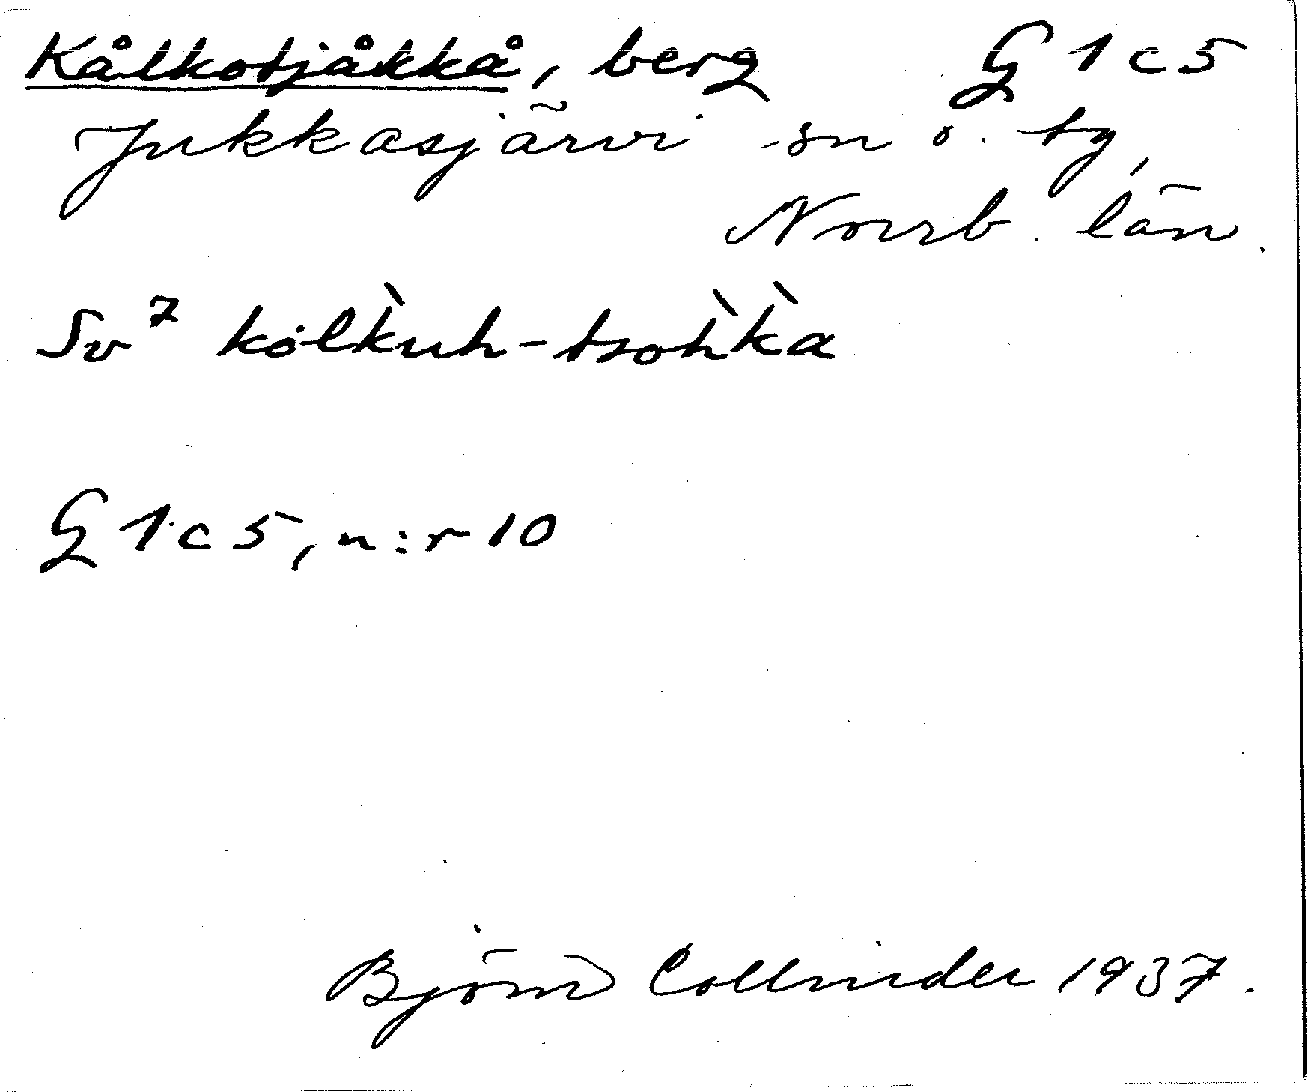 Kålkotjåkkå, berg G 1 c 5
Jukkasjärvi sn o. tg,
Norrb. län.
Sv⁷ kålk̀uh-tsoh̀k̀a
G 1 c 5, n:r 10
Björn Collinder 1937.